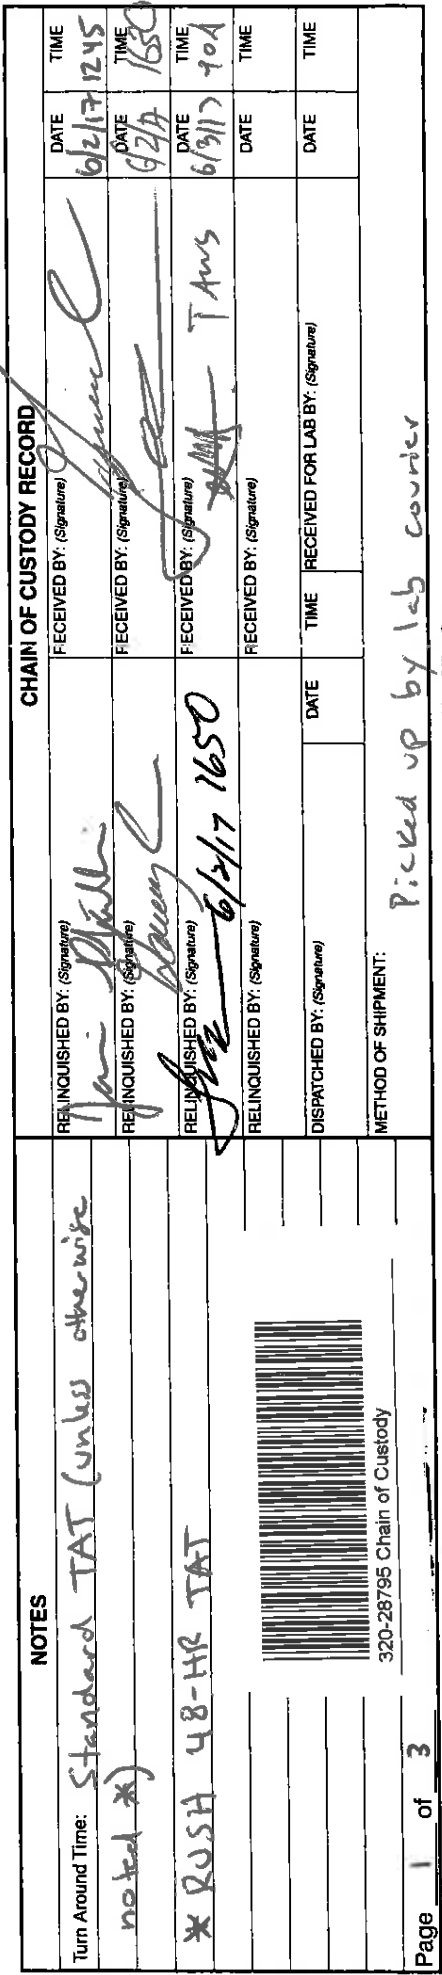 NOTES
Turn Around Time: Standard TAT (unless otherwise
noted *)
* RUSH 48-HR TAT
320-28795 Chain of Custody
Page 1 of 3
CHAIN OF CUSTODY RECORD
RELINQUISHED BY: (Signature)
RECEIVED BY: (Signature)
DATE 6/2/17
TIME 1245
RELINQUISHED BY: (Signature)
RECEIVED BY: (Signature)
DATE 6/2/17
TIME 1650
RELINQUISHED BY: (Signature) 6/2/17 1650
RECEIVED BY: (Signature)
DATE 6/3/17
TIME
RELINQUISHED BY: (Signature)
RECEIVED BY: (Signature)
DATE
TIME
DISPATCHED BY: (Signature)
DATE
TIME
RECEIVED FOR LAB BY: (Signature)
DATE
TIME
METHOD OF SHIPMENT: Picked up by lab courier